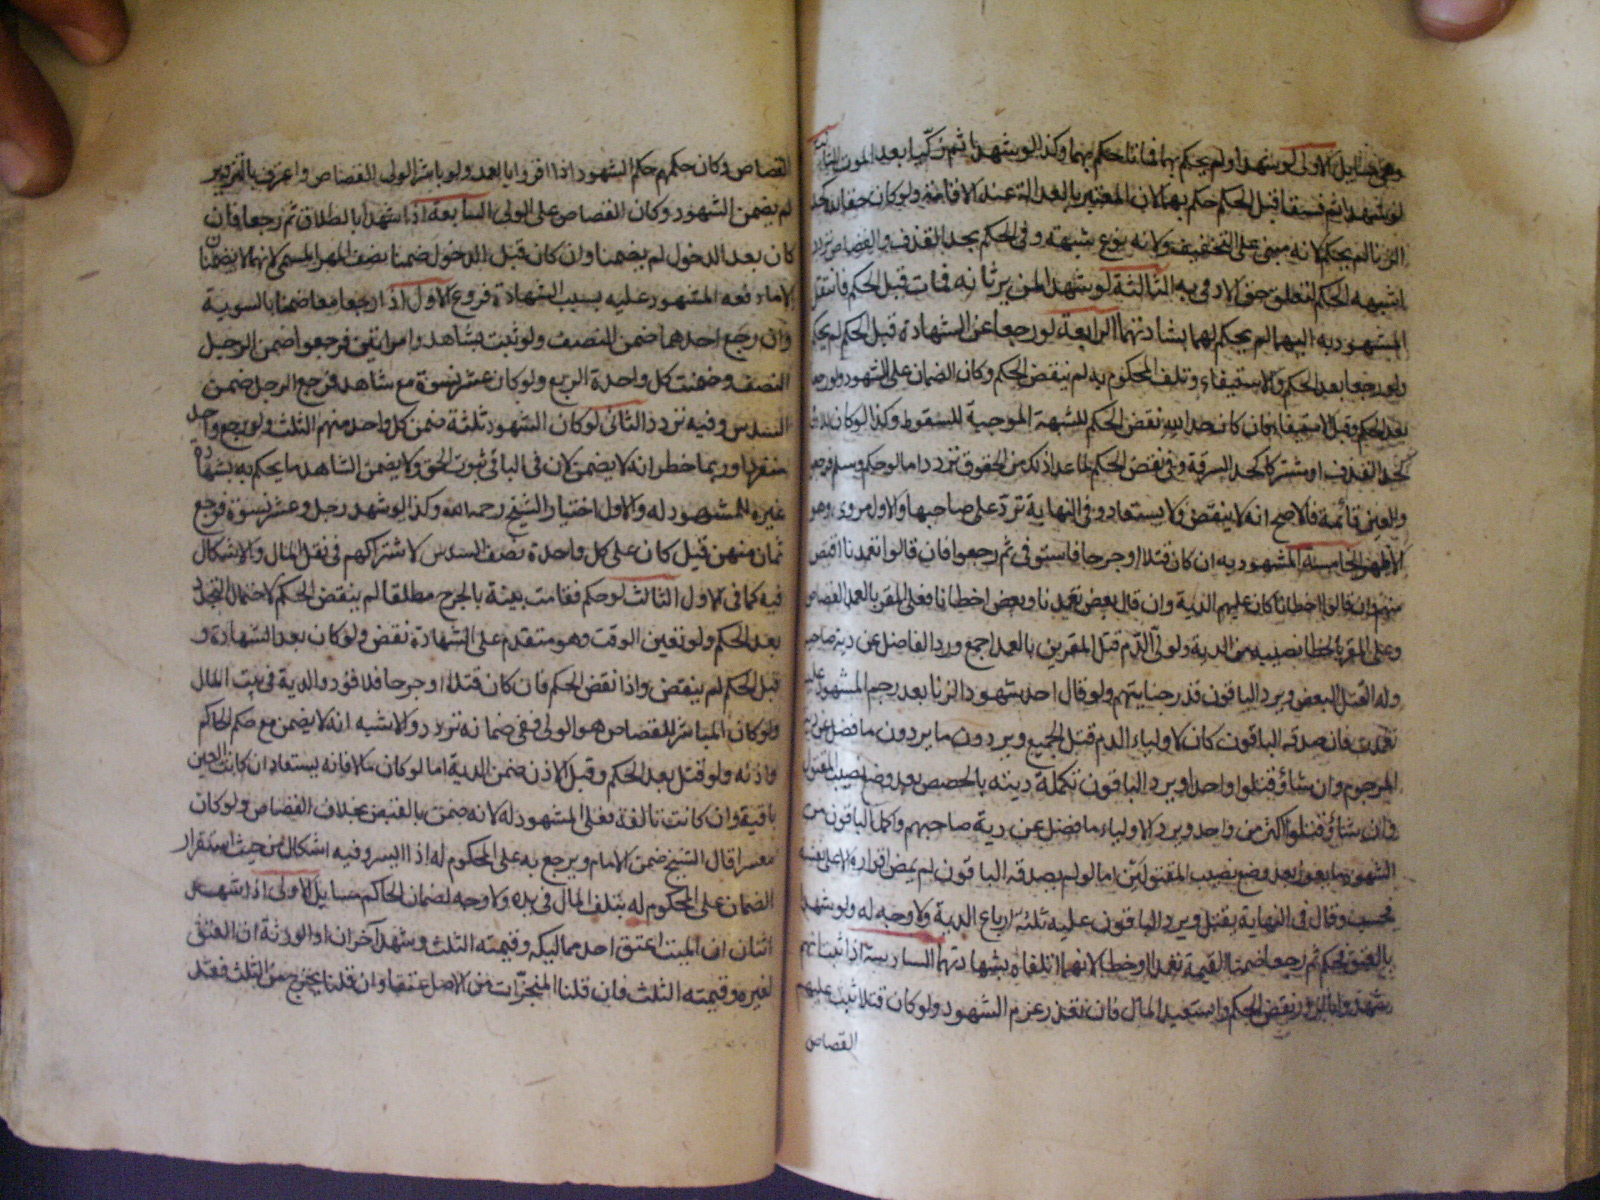 وهي مسايل الاولى لو شهدا ولم يحكم بهما فماتا حكم بهما وكذا لو شهدا ثم زكيا بعد الموت الثانية
لو شهدا ثم فسقا قبل الحكم حكم بهما لان المعتبر بالعدالة عند الاقامة ولو كان حقا لله كحد
الزنا لم يحكم لانه مبنى على التخفيف ولانه نوع شبهة وفي الحكم بحد القذف والقصاص تردد
اشبهه الحكم لتعلق حق الادمي به الثالثة لو شهدا لمن يرثانه فمات قبل الحكم فانتقل
المشهود به اليهما لم يحكم لهما بشهادتهما الرابعة لو رجعا عن الشهادة قبل الحكم لم يحكم
ولو رجعا بعد الحكم والاستيفاء وتلف المحكوم به لم ينقض الحكم وكان الضمان على الشهود ولو رجعا
بعد الحكم وقبل الاستيفاء فان كان حدا لله نقض الحكم للشبهة الموجبة للسقوط وكذا لو كان للادمي
كحد القذف او مشتركا كحد السرقة وفي نقض الحكم لما عدا ذلك من الحقوق تردد اما لو حكم وسلم فرجعوا
والعين قائمة فالاصح انه لا ينقض ولا يستعاد وفي النهاية ترد على صاحبها والاول مروى وهو
الاظهر الخامسة المشهود به ان كان قتلا او جرحا فاستوفى ثم رجعوا فان قالوا تعمدنا اقتص
منهم وان قالوا اخطانا كان عليهم الدية وان قال بعض تعمدنا وبعض اخطانا فعلى المقر بالعمد القصاص
وعلى المقر بالخطا نصيبه من الدية ولولى الدم قتل المقرين بالعمد اجمع ورد الفاضل عن دية صاحبه
وله القتل البعض ويرد الباقون قدر جنايتهم ولو قال احد شهود الزنا بعد رجم المشهود عليه
تعمدت فان صدقه الباقون كان لاولياء الدم قتل الجميع ويردون ما يردون ما فضل عن دية
المرجوم وان شاؤ قتلوا واحدا ويرد الباقون تكملة ديته بالحصص بعد وضع نصيب المقتول
وان شاؤ قتلوا اكثر من واحد ويرد الاولياء ما فضل عن دية صاحبهم واكمل الباقون من
الشهود ما يعوز بعد وضع نصيب المقتولين اما لو لم يصدقه الباقون لم يمض اقراره الا على نفسه
فحسب وقال في النهاية يقتل ويرد الباقون عليه ثلثة ارباع الدية ولا وجه له ولو شهدا
بالعتق فحكم ثم رجعا ضمنا القيمة تعمدا او خطا لانهما اتلفاه بشهادتهما السادسة اذا ثبت انهم
شهدوا بالزور نقض الحكم واستعيد المال فان تعذر غرم الشهود ولو كان قتلا ثبت عليهم
القصاص
القصاص وكان حكمهم حكم الشهود اذا اقروا بالعمد ولو باشر الولى القصاص واعترف بالتزوير
لم يضمن الشهود وكان القصاص على الولى السابعة اذا شهدا بالطلاق ثم رجعا فان
كان بعد الدخول لم يضمنا وان كان قبل الدخول ضمنا نصف المهر المسمى لانهما لا يضمنان
الا ما دفعه المشهود عليه بسبب الشهادة فروع الاول اذا رجعا معا ضمنا بالسوية
وان رجع احدهما ضمن النصف ولو ثبت بشاهد وامراتين فرجعوا ضمن الرجل
النصف وضمنت كل واحدة الربع ولو كان عشر نسوة مع شاهد فرجع الرجل ضمن
السدس وفيه تردد الثانى لو كان الشهود ثلثة ضمن كل واحد منهم الثلث ولو رجع واحد
منفردا وربما خطر انه لا يضمن لان في الباقي ثبوت الحق ولا يضمن الشاهد ما يحكم به بشهادة
غيره للمشهود له والاول اختيار الشيخ رحمه الله وكذا لو شهد رجل وعشر نسوة فرجع
ثمان منهن قيل كان على كل واحدة نصف السدس لاشتراكهم في نقل المال والاشكال
فيه كما في الاول الثالث لو حكم فقامت بينة بالجرح مطلقا لم ينقض الحكم لاحتمال التجدد
بعد الحكم ولو تعين الوقت وهو متقدم على الشهادة نقض ولو كان بعد الشهادة و
قبل الحكم لم ينقض واذا نقض الحكم فان كان قتلا او جرحا فلا قود والدية في بيت المال
ولو كان المباشر للقصاص هو الولى ففي ضمانه تردد والاشبه انه لا يضمن مع حكم الحاكم
واذنه ولو قتل بعد الحكم وقبل الاذن ضمن الدية اما لو كان مالا فانه يستعاد ان كانت العين
باقية وان كانت تالفة فعلى المشهود له لانه ضمن بالقبض بخلاف القصاص ولو كان
معسرا قال الشيخ ضمن الامام ويرجع به على المحكوم له اذا ايسر وفيه اشكال من حيث استقرار
الضمان على المحكوم له بتلف المال في يده ولا وجه لضمان الحاكم مسايل الاولى اذا شهد
اثنان ان الميت اعتق احد مماليكه وقيمته الثلث وشهد آخران او الورثة ان العتق
لغيره وقيمته الثلث فان قلنا المنجزات من الاصل عتقا وان قلنا يخرج من الثلث فقد